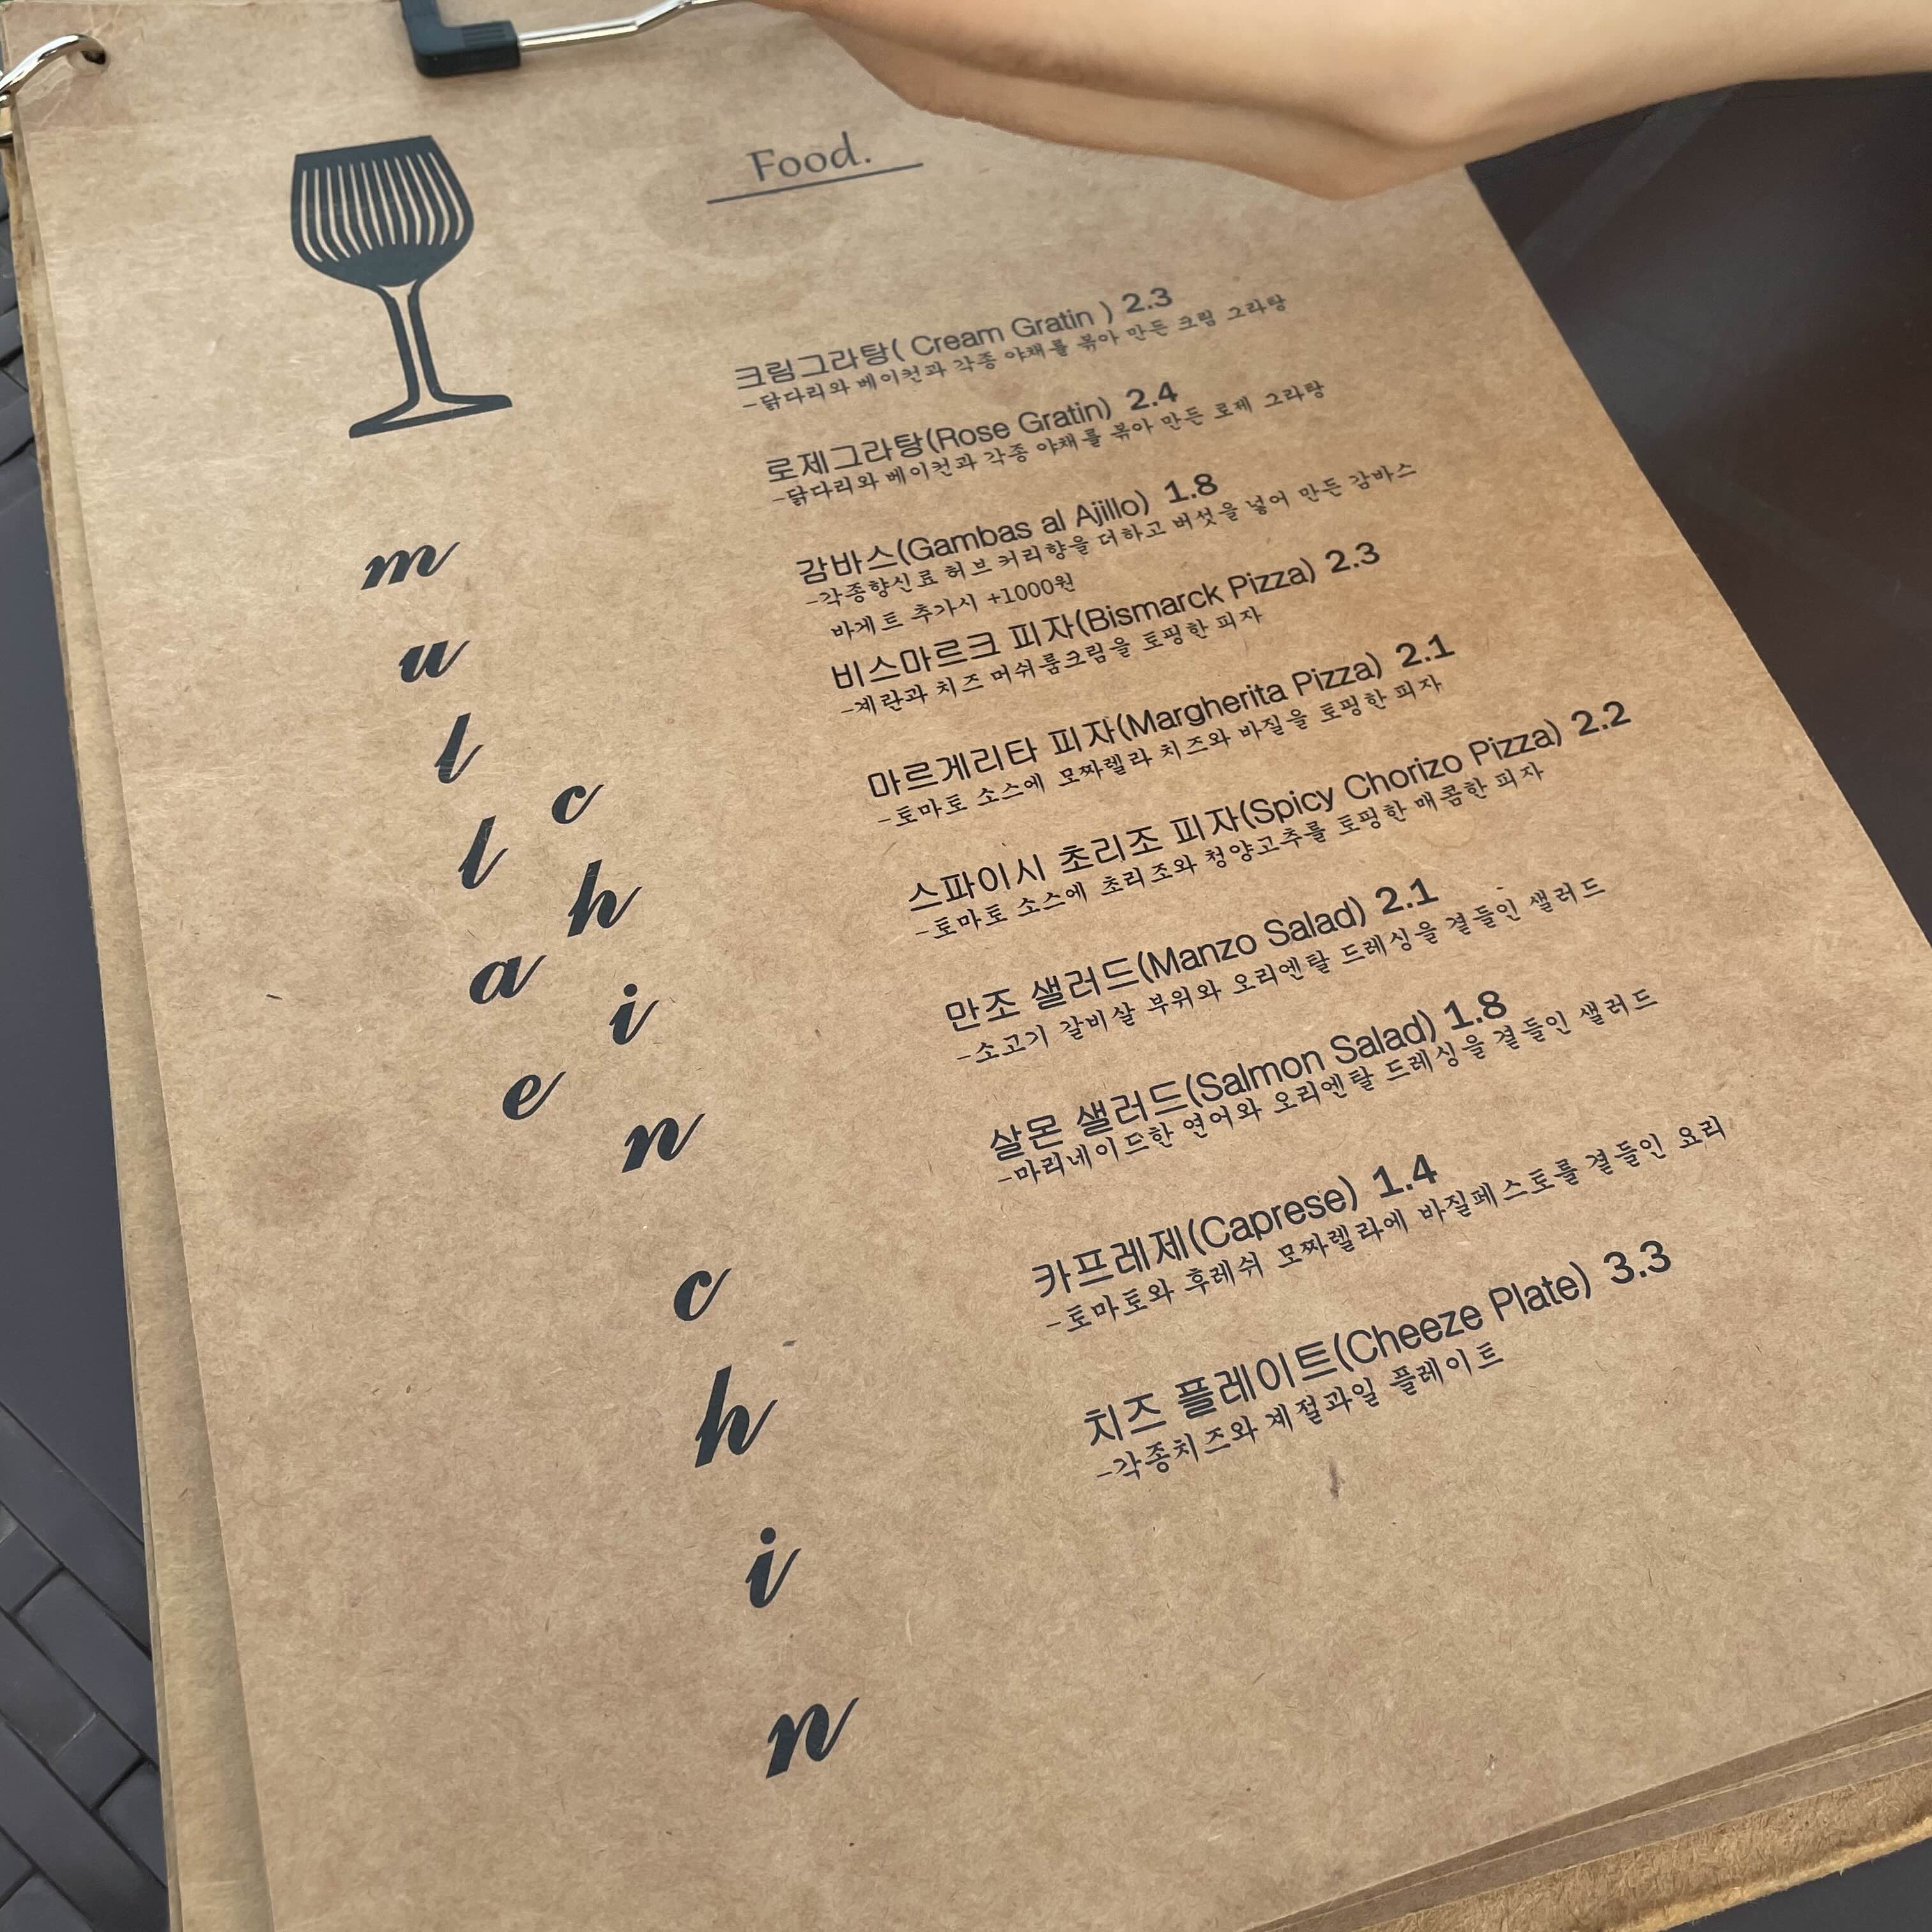 Food.
크림그라탕( Cream Gratin ) 2.3
-닭다리와 베이컨과 각종 야채를 볶아 만든 크림 그라탕
로제그라탕(Rose Gratin) 2.4
-닭다리와 베이컨과 각종 야채를 볶아 만든 로제 그라탕
감바스(Gambas al Ajillo) 1.8
-각종향신료 허브 커리향을 더하고 버섯을 넣어 만든 감바스
바게트 추가시 +1000원
비스마르크 피자(Bismarck Pizza) 2.3
-계란과 치즈 머쉬룸크림을 토핑한 피자
마르게리타 피자(Margherita Pizza) 2.1
-토마토 소스에 모짜렐라 치즈와 바질을 토핑한 피자
스파이시 초리조 피자(Spicy Chorizo Pizza) 2.2
-토마토 소스에 초리조와 청양고추를 토핑한 매콤한 피자
만조 샐러드(Manzo Salad) 2.1
-소고기 갈비살 부위와 오리엔탈 드레싱을 곁들인 샐러드
살몬 샐러드(Salmon Salad) 1.8
-마리네이드한 연어와 오리엔탈 드레싱을 곁들인 샐러드
카프레제(Caprese) 1.4
-토마토와 후레쉬 모짜렐라에 바질페스토를 곁들인 요리
치즈 플레이트(Cheeze Plate) 3.3
-각종치즈와 계절과일 플레이트
mullae
chin
chin